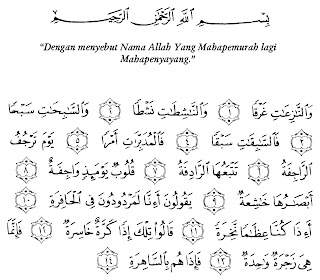 بِسْمِ اللَّهِ الرَّحْمَٰنِ الرَّحِيمِ
“Dengan menyebut Nama Allah Yang Mahapemurah lagi
Mahapenyayang.”
وَالنَّازِعَاتِ غَرْقًا ١ وَالنَّاشِطَاتِ نَشْطًا ٢ وَالسَّابِحَاتِ سَبْحًا
٣ فَالسَّابِقَاتِ سَبْقًا ٤ فَالْمُدَبِّرَاتِ أَمْرًا ٥ يَوْمَ تَرْجُفُ
الرَّاجِفَةُ ٦ تَتْبَعُهَا الرَّادِفَةُ ٧ قُلُوبٌ يَوْمَئِذٍ وَاجِفَةٌ ٨
أَبْصَارُهَا خَاشِعَةٌ ٩ يَقُولُونَ أَءِنَّا لَمَرْدُودُونَ فِي الْحَافِرَةِ ١٠
أَءِذَا كُنَّا عِظَامًا نَّخِرَةً ١١ قَالُوا تِلْكَ إِذًا كَرَّةٌ خَاسِرَةٌ ١٢ فَإِنَّمَا
هِيَ زَجْرَةٌ وَاحِدَةٌ ١٣ فَإِذَا هُم بِالسَّاهِرَةِ ١٤